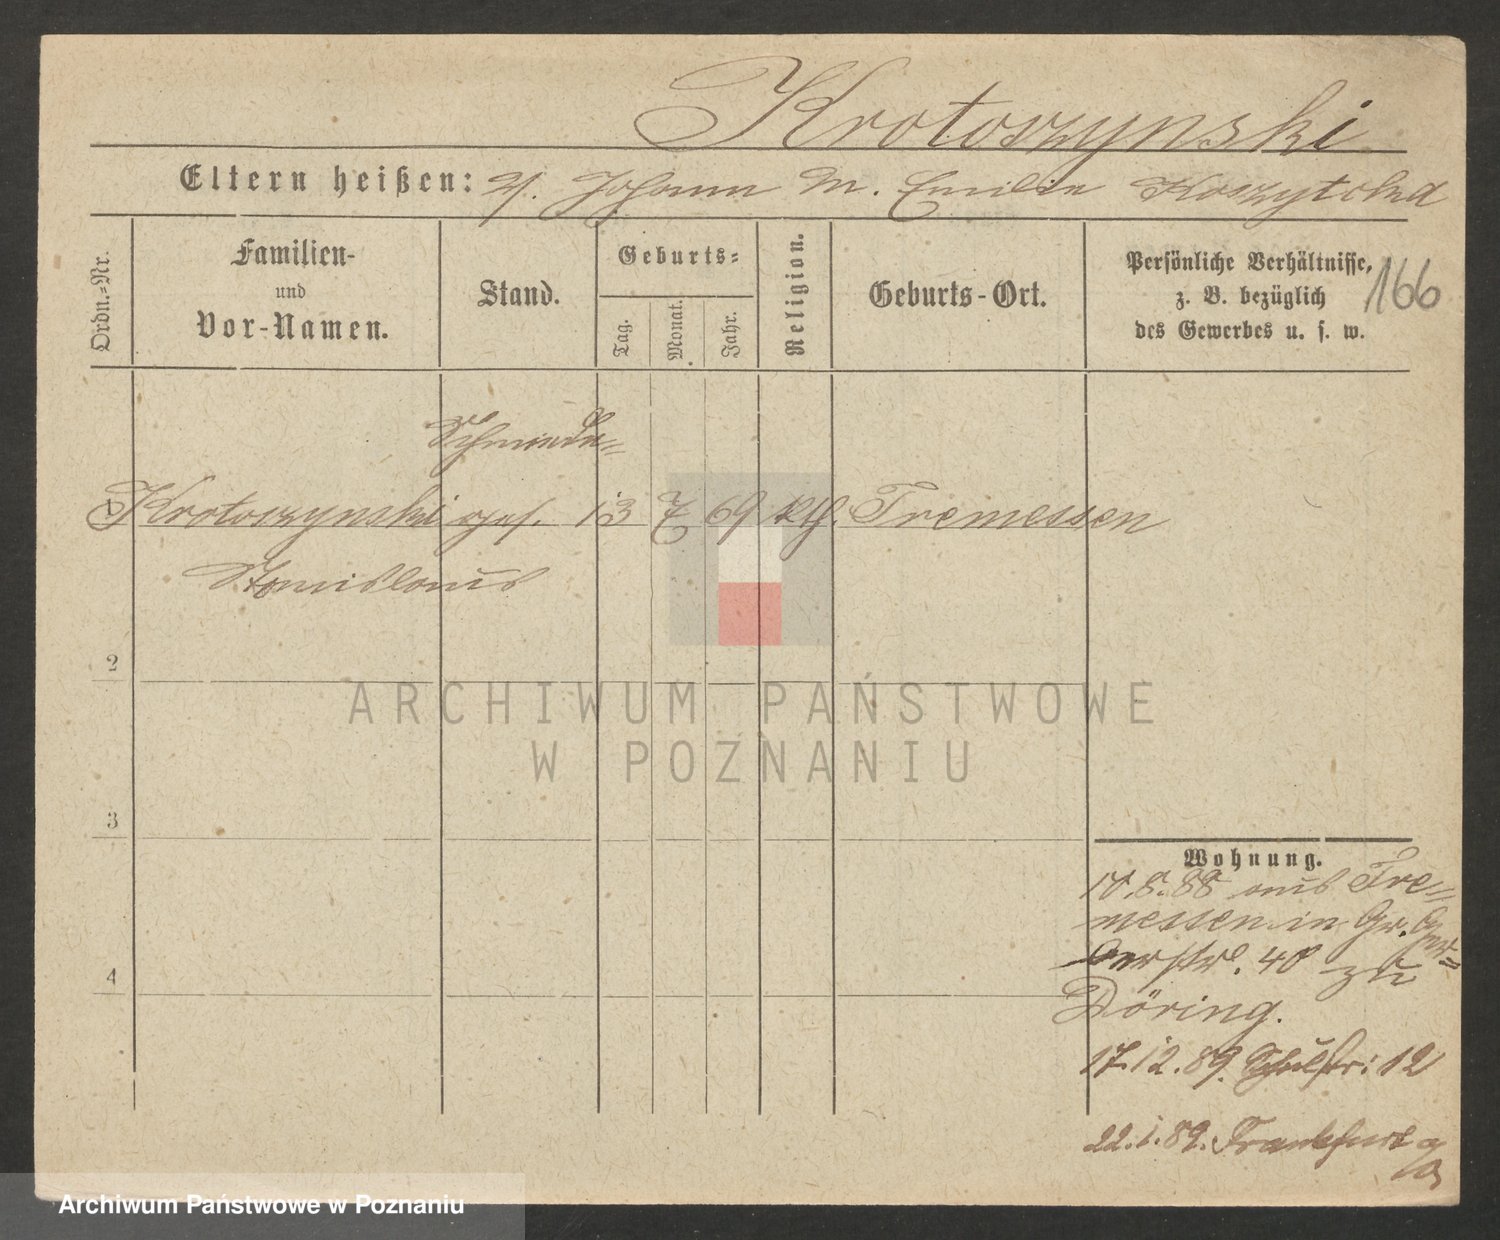 Krotoszynski
Eltern heißen: V. Johann M. Emilie Koszytcka
Ordn.-Nr.
Familien-
und
Vor-Namen.
Stand.
Geburts-
Tag.
Monat.
Jahr.
Religion.
Geburts-Ort.
Persönliche Verhältnisse,
z. B. bezüglich
des Gewerbes u. s. w.
166
Schmiede-
1 Krotoszynski ges. 13 7 69 kth. Tremessen
Stanislaus
2
ARCHIWUM PAŃSTWOWE
W POZNANIU
3
Wohnung.
10.8.88 aus Tre-
messen in Gr. Ger-
berstr. 40 zu
4
Döring.
17.12.89. Schulstr. 12
22.1.89. Frankfurt a/O
Archiwum Państwowe w Poznaniu